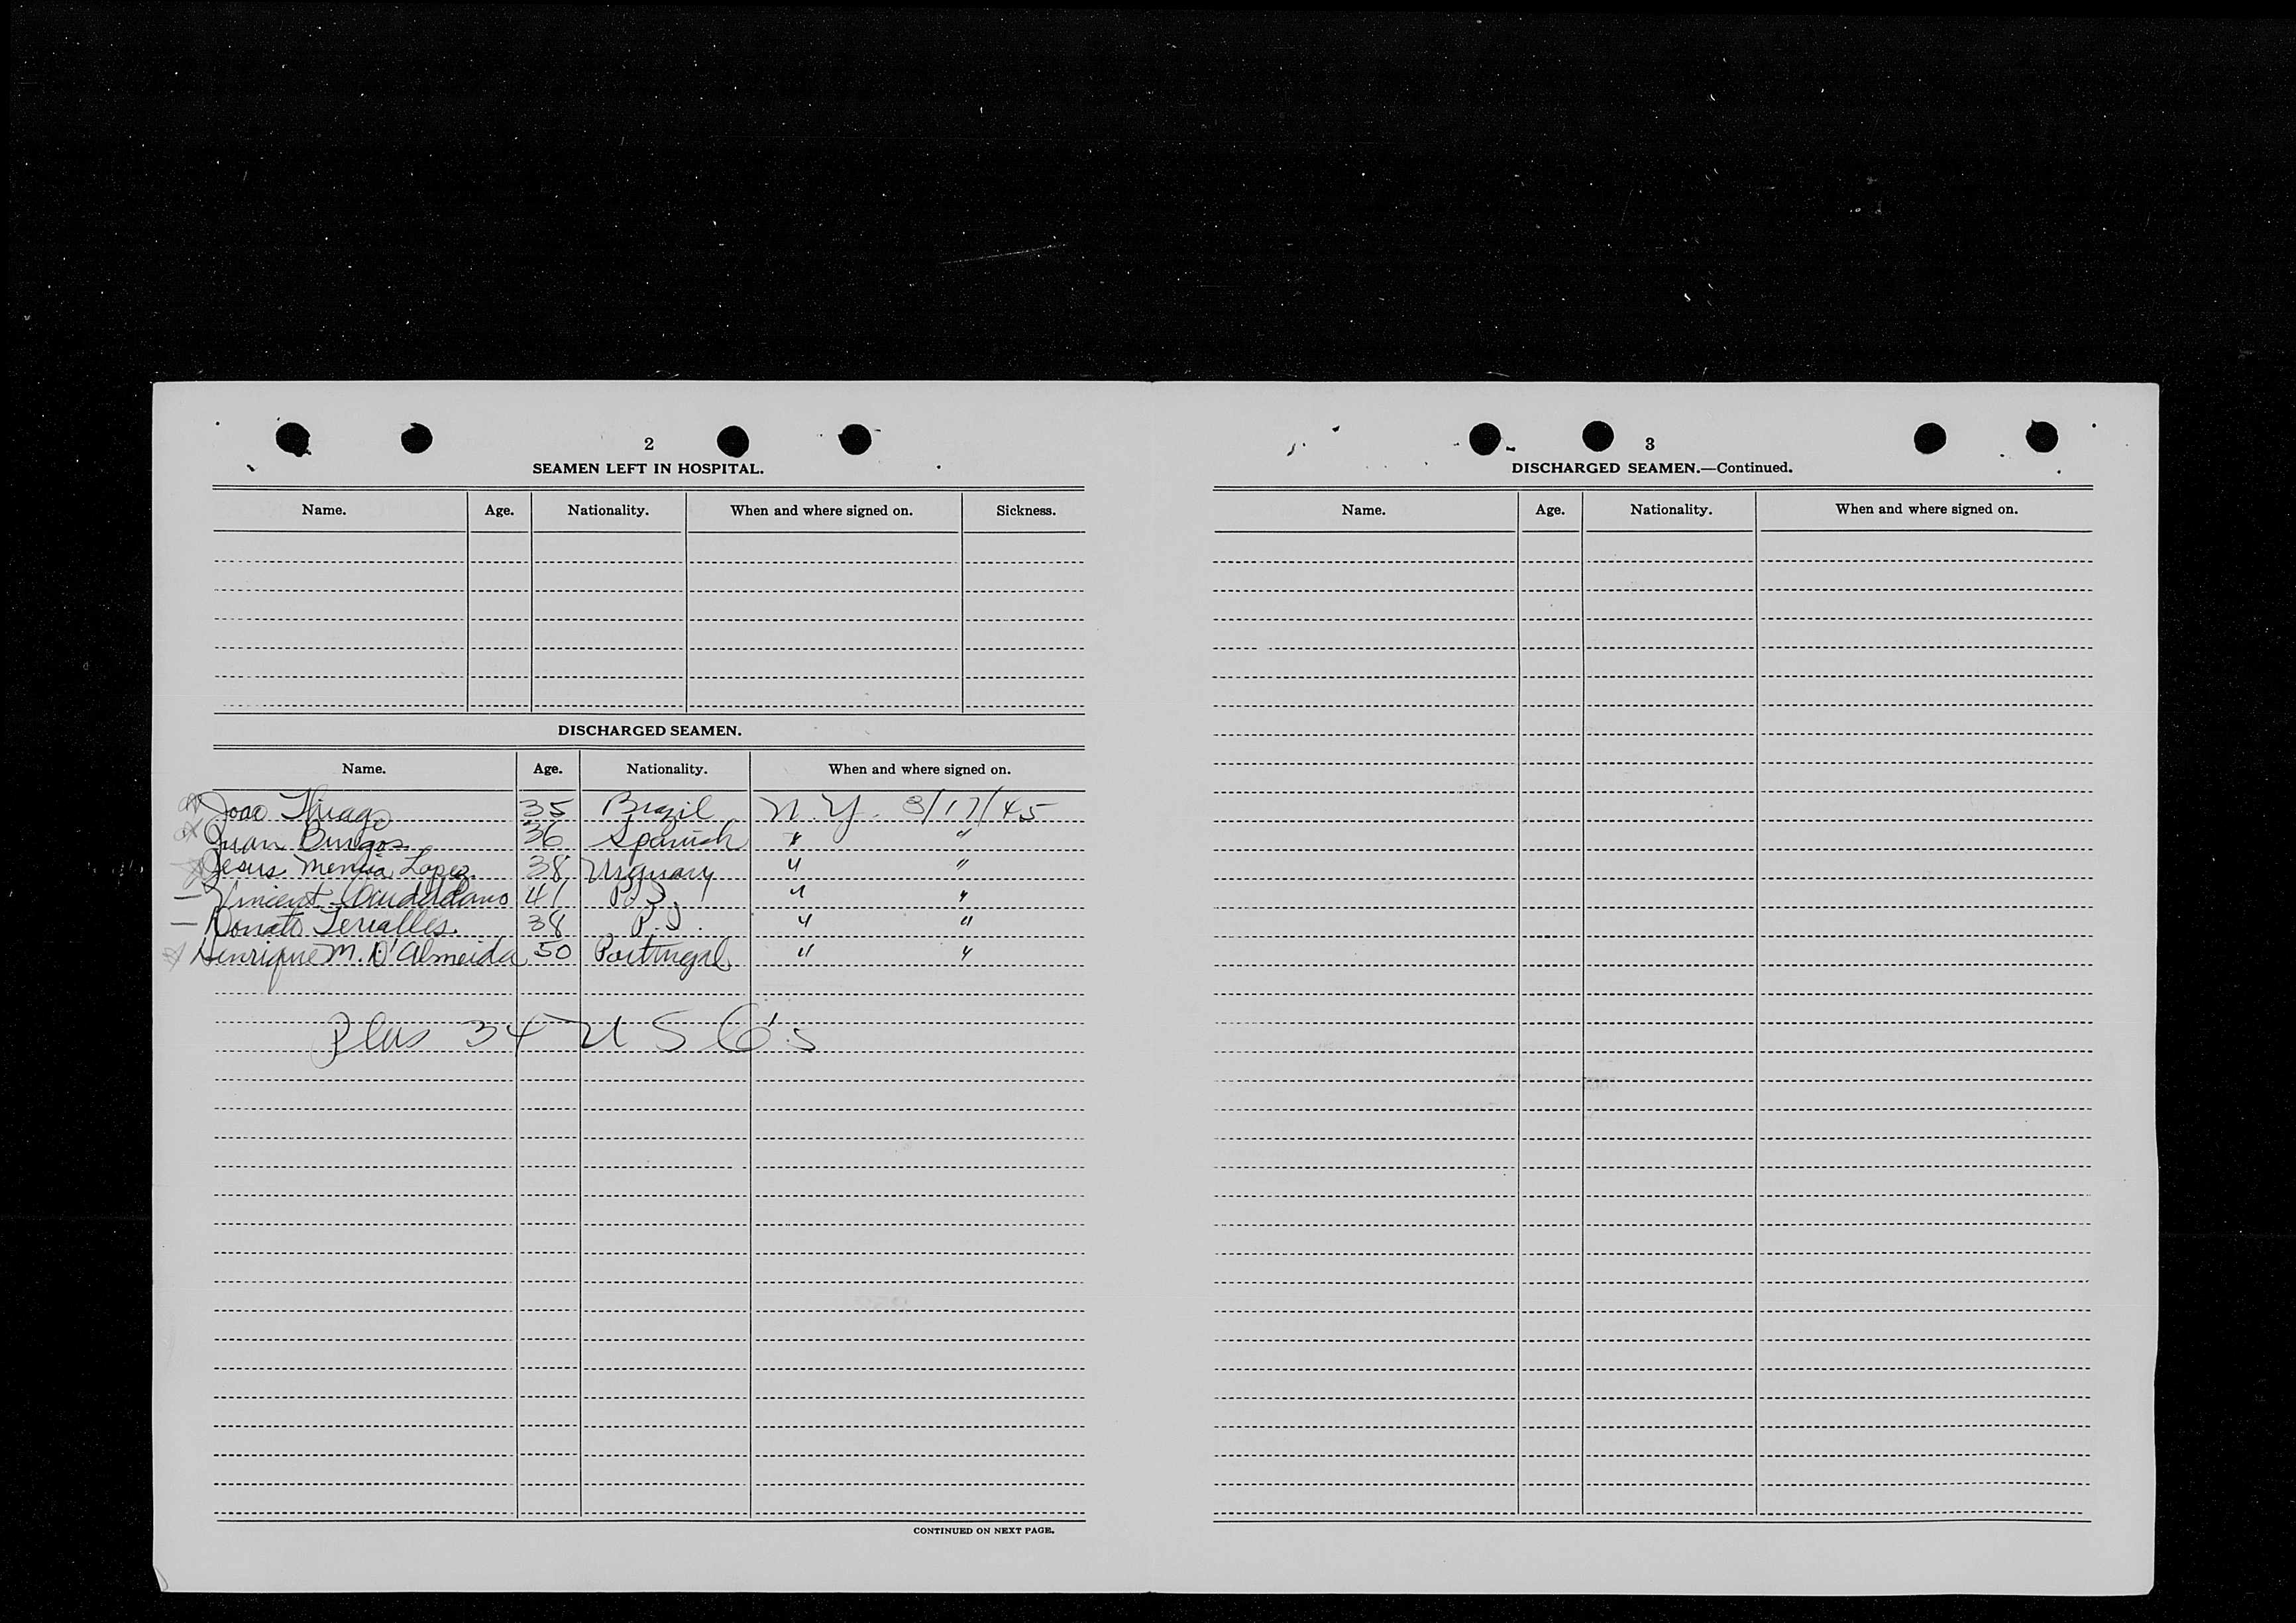 2
SEAMEN LEFT IN HOSPITAL.
Name. Age. Nationality. When and where signed on. Sickness.
DISCHARGED SEAMEN.
Name. Age. Nationality. When and where signed on.
Joao Thiago 35 Brazil N.Y. 3/17/45
Juan Burgos 36 Spanish " "
Jesus Lopez 38 Uruguary " "
Vincent 41 P.I. " "
Donato 38 P.I. " "
Henrique M. D'Almeida 50 Portugal " "
Plus 34 U S C's
CONTINUED ON NEXT PAGE.
3
DISCHARGED SEAMEN.—Continued.
Name. Age. Nationality. When and where signed on.